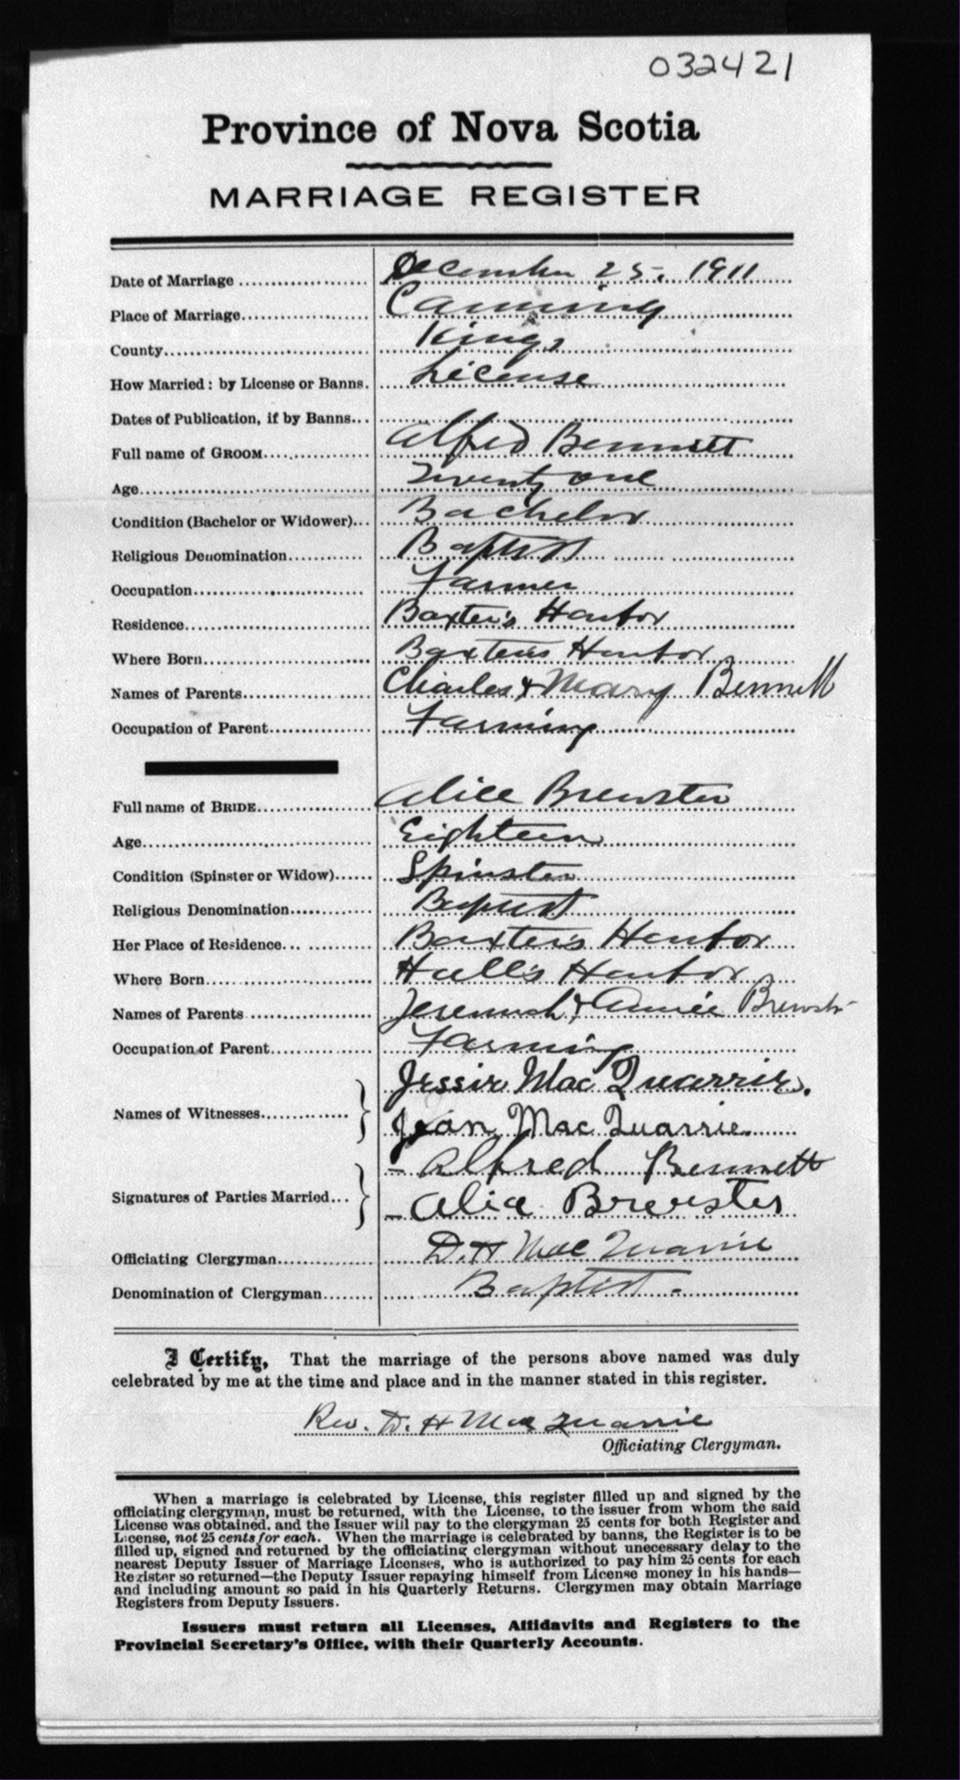 032421
Province of Nova Scotia
MARRIAGE REGISTER
Date of Marriage December 25, 1911
Place of Marriage Canning
County Kings
How Married: by License or Banns. License
Dates of Publication, if by Banns
Full name of GROOM Alfred Bennett
Age Twenty one
Condition (Bachelor or Widower) Bachelor
Religious Denomination Baptist
Occupation Farmer
Residence Baxter's Harbor
Where Born Baxter's Harbor
Names of Parents Charles & Mary Bennett
Occupation of Parent Farming
Full name of BRIDE Alice Brewster
Age Eighteen
Condition (Spinster or Widow) Spinster
Religious Denomination Baptist
Her Place of Residence Baxter's Harbor
Where Born Hall's Harbor
Names of Parents Jeremiah & Annie Brewstr
Occupation of Parent Farming
Names of Witnesses Jessie MacQuarrie.
Jean MacQuarrie
Signatures of Parties Married - Alfred Bennett
- Alice Brewster
Officiating Clergyman D. H MacQuarrie
Denomination of Clergyman Baptist.
I Certify, That the marriage of the persons above named was duly
celebrated by me at the time and place and in the manner stated in this register.
Rev. D. H MacQuarrie
Officiating Clergyman.
When a marriage is celebrated by License, this register filled up and signed by the
officiating clergyman, must be returned, with the License, to the issuer from whom the said
License was obtained, and the Issuer will pay to the clergyman 25 cents for both Register and
License, not 25 cents for each. When the marriage is celebrated by banns, the Register is to be
filled up, signed and returned by the officiating clergyman without unecessary delay to the
nearest Deputy Issuer of Marriage Licenses, who is authorized to pay him 25 cents for each
Register so returned—the Deputy Issuer repaying himself from License money in his hands—
and including amount so paid in his Quarterly Returns. Clergymen may obtain Marriage
Registers from Deputy Issuers.
Issuers must return all Licenses, Affidavits and Registers to the
Provincial Secretary's Office, with their Quarterly Accounts.